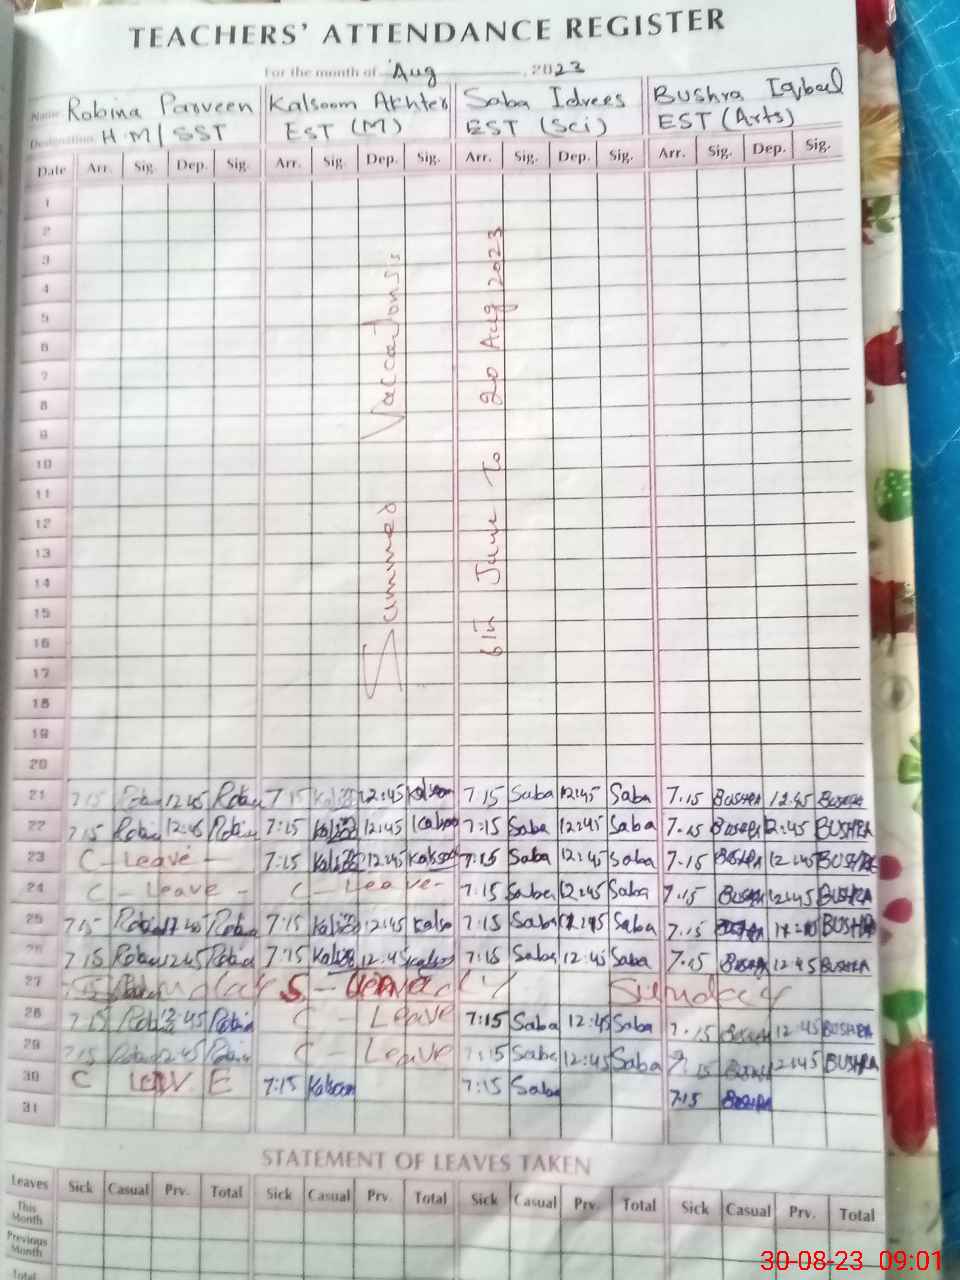 TEACHERS' ATTENDANCE REGISTER
For the month of Aug 2023
Name Robina Parveen Kalsoom Akhter Saba Idrees Bushra Iqbal
Designation HM/SST EST (M) EST (Sci) EST (Arts)
Date Arr. Sig. Dep. Sig. Arr. Sig. Dep. Sig. Arr. Sig. Dep. Sig. Arr. Sig. Dep. Sig.
1
2
3
4
5
6
7
8
9
10
11
12
13
14
15
16
17
18
19
20
Summer Vaccations
6th June To 20 Aug 2023
21 7:15 Robina 12:45 Robina 7:15 12:45 Kalsoom 7:15 Saba 12:45 Saba 7.15 BUSHRA 12:45 BUSHRA
22 7:15 Robina 12:45 Robina 7:15 12:45 7:15 Saba 12:45 Saba 7.15 BUSHRA 12:45 BUSHRA
23 C - Leave - 7:15 12:45 Kalsoom 7:15 Saba 12:45 Saba 7.15 BUSHRA 12:45 BUSHRA
24 C - Leave - C - Leave - 7:15 Saba 12:45 Saba 7.15 BUSHRA 12:45 BUSHRA
25 7:15 Robina Robina 7:15 12:45 Kalso 7:15 Saba Saba 7.15 BUSHRA
26 7:15 Robina 12:45 Robina 7:15 12:45 Kalsoom 7:15 Saba 12:45 Saba 7.15 BUSHRA 12:45 BUSHRA
27 Sunday
28 7:15 Robina C - Leave 7:15 Saba 12:45 Saba 7.15 BUSHRA 12:45 BUSHRA
29 7:15 Robina 12:45 Robina C - Leave 7:15 Saba 12:45 Saba 7.15 BUSHRA 12:45 BUSHRA
30 C LEAVE 7:15 Kalsoom 7:15 Saba 7:15 BUSHRA
31
STATEMENT OF LEAVES TAKEN
Leaves Sick Casual Prv. Total Sick Casual Prv. Total Sick Casual Prv. Total Sick Casual Prv. Total
This Month
Previous Month
Total
30-08-23 09:01